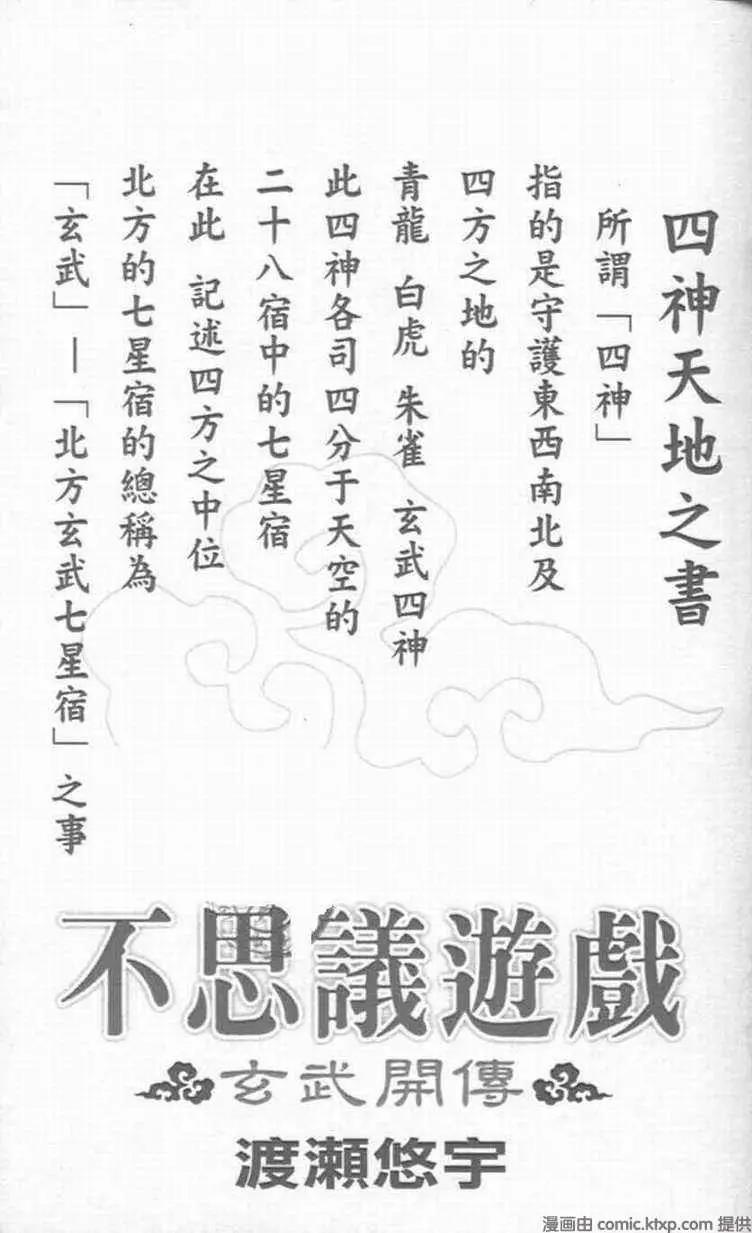 四神天地之書
所謂「四神」
指的是守護東西南北及
四方之地的
青龍 白虎 朱雀 玄武四神
此四神各司四分于天空的
二十八宿中的七星宿
在此 記述四方之中位
北方的七星宿的總稱為
「玄武」—「北方玄武七星宿」之事
不思議遊戲
玄武開傳
渡瀬悠宇
漫画由 comic.ktxp.com 提供